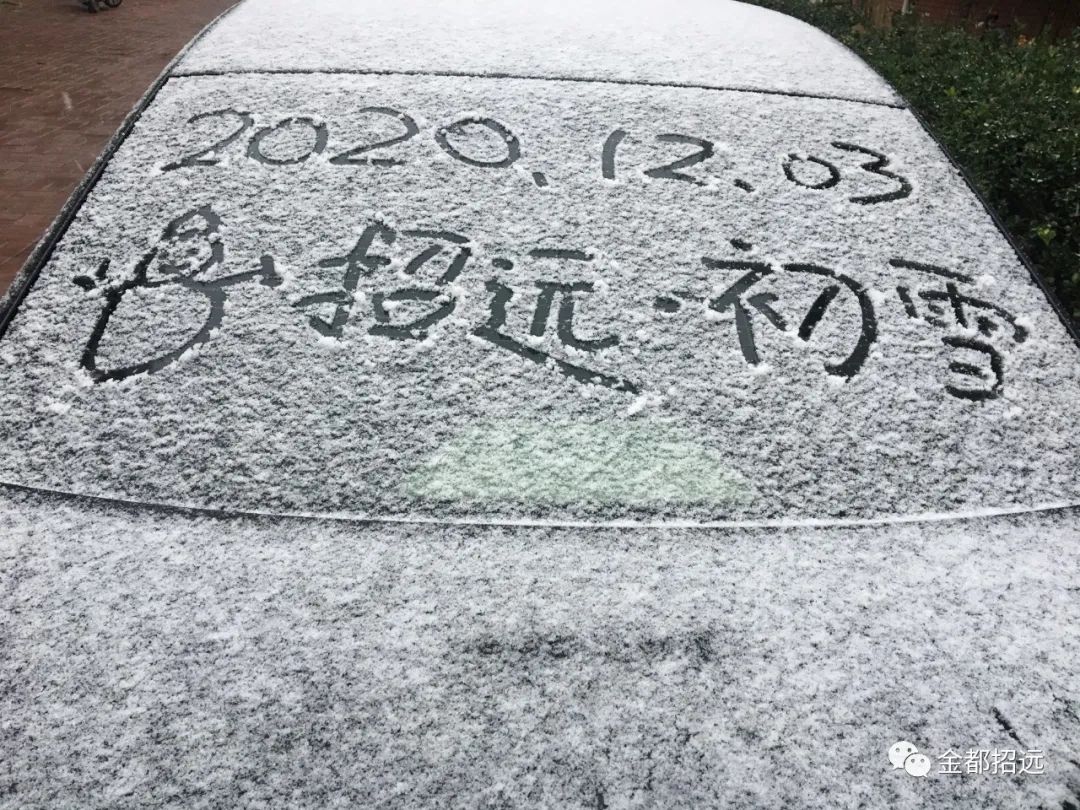 2020.12.03
招远·初雪
金都招远